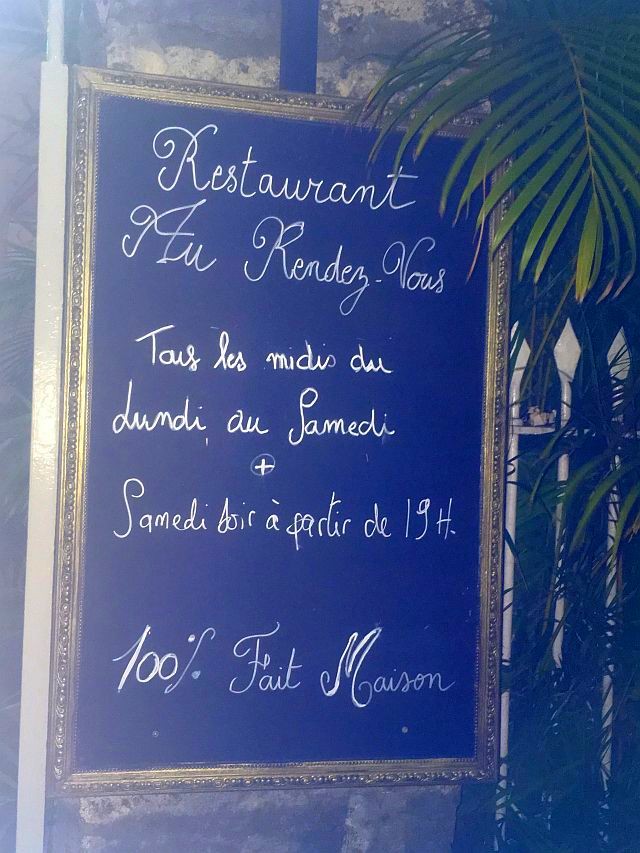 Restaurant
Au Rendez-Vous
Tous les midis du
Lundi au Samedi
+
Samedi soir à partir de 19H.
100% Fait Maison